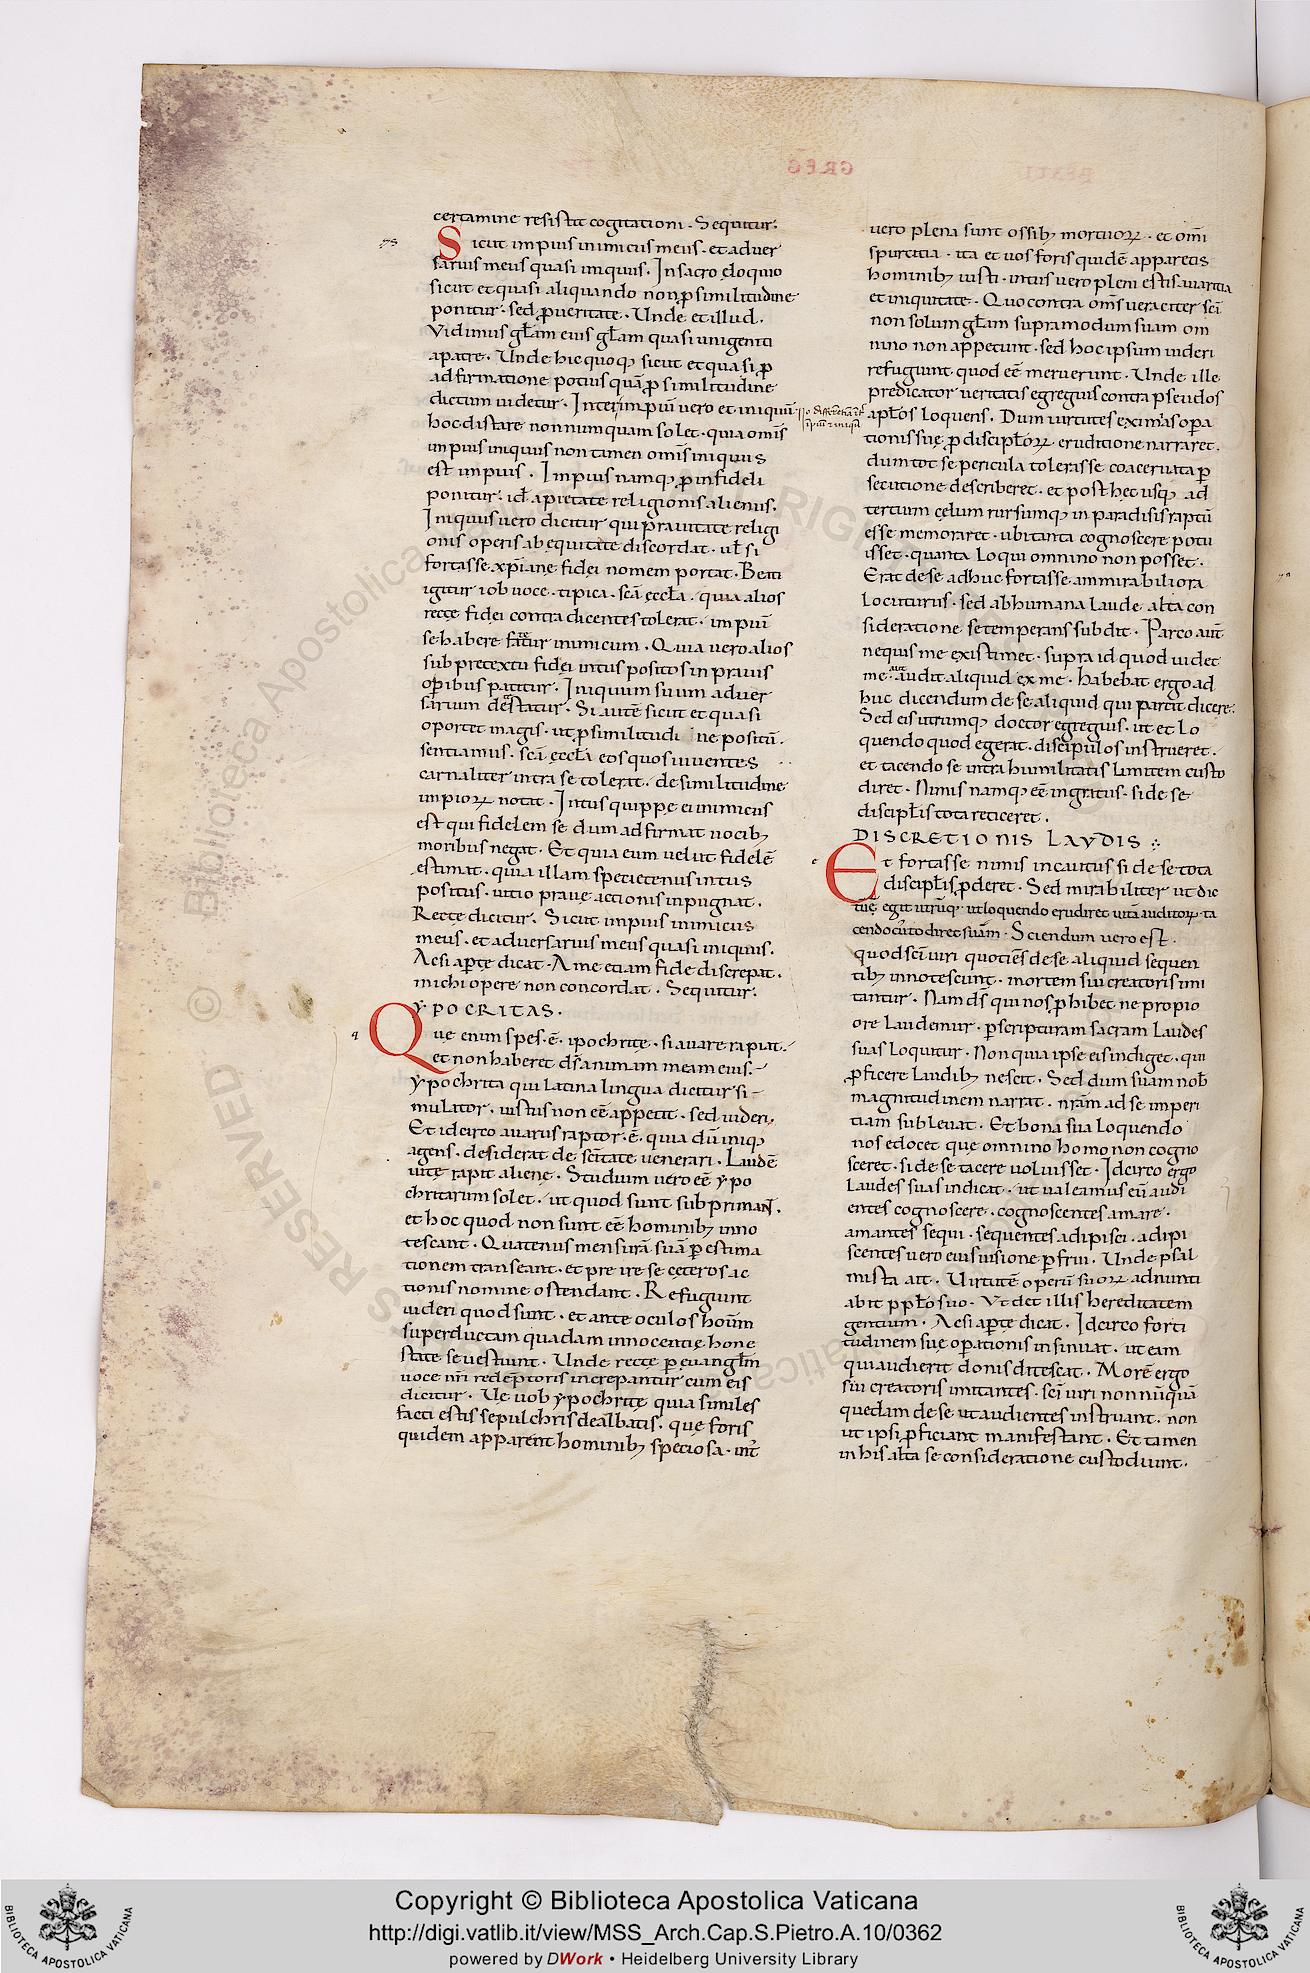 certamine resistit cogitationi. Sequitur.
Sicut impius inimicus meus. et adver
sarius meus quasi iniquus. In sacro ęloquio
sicut et quasi aliquando non ꝓ similitudine
ponitur. sed ꝓ veritate. Unde et illud.
Vidimus gl̄am eius gl̄am quasi unigeniti
a patre. Unde hic quoq; sicut et quasi ꝓ
adfirmatione potius quā ꝓ similitudine
dictum videtur. Inter impiū vero et iniquū
hoc distare nonnumquam solet. quia omīs
impius iniquus non tamen omīs iniquus
est impius. Impius namq; ꝓ infideli
ponitur. id̄ a pietate religionis alienus.
Iniquus vero dicitur qui pravitate religi
onis operis ab equitate discordat. vl̄ si
fortasse xp̄ianę fidei nomem portat. Beati
igitur iob voce. tipica. scā ęccl̄a. quia alios
recte fidei contradicentes tolerat. impiū
se habere fatetur inimicum. Quia vero alios
sub pretextu fidei intus positos in pravis
oꝑibus patitur. Iniquum suum adver
sarium detestatur. Si autē sicut et quasi
oportet magis. ut ꝓ similitudine positū.
sentiamus. scā ęccl̄a eos quos viventes
carnaliter intra se tolerat. de similitudine
impioꝝ notat. Intus quippe ei inimicus
est qui fidelem se dum adfirmat vocib;
moribus negat. Et quia eum velut fidelē
estimat. quia illam specietenus intus
positus. vitio pravę actionis inpugnat.
Recte dicitur. Sicut impius inimicus
meus. et adversarius meus quasi iniquus.
Ac si aꝑte dicat. A me etiam fide discrepat.
michi opere non concordat. Sequitur.
YPOCRITAS.
Que enim spes. ē. ipochritę. si avare rapiat.
et non haberet d̄s animam meam eius.
Ypochrita qui latina lingua dicitur si
mulator. iustus non eē appetit. sed videri.
Et idcirco avarus raptor. ē. quia dū iniq;
agens. desiderat de sc̄itate venerari. Laudē
vitę rapit alienę. Studium vero eē ypo
chritarum solet. ut quod sunt subprimant.
et hoc quod non sunt eē hominib; inno
tescant. Quatenus mensurā suā ꝑ estima
tionem transeant. et preire se ceteros ac
tionis nomine ostendant. Refugiunt
videri quod sunt. et ante oculos hoīum
superductam quadam innocentię hone
state se vestiunt. Unde recte ꝑ evanglīm
voce nr̄i redemptoris increpantur cum eis
dicitur. Ve vob̄ ypochritę quia similes
facti estis sepulchris dealbatis. que foris
quidem apparent hominib; speciosa. int̄
GREG
vero plena sunt ossib; mortuoꝝ. et omī
spurcitia. ita et vos foris quidē apparetis
hominib; iusti. intus vero pleni estis avaritia
et iniquitate. Quo contra om̄s veraciter scī
non solum gl̄am supra modum suam om
nino non appetunt. sed hoc ipsum videri
refugiunt. quod eē meruerunt. Unde ille
predicator veritatis egregius contra pseudos
apl̄os loquens. Dum virtutes eximias oꝑa
tionis suę. ꝓ discipl̄oꝝ eruditione narraret.
dum tot se pericula tolerasse coacervata ꝑ
secutione describeret. et post hec usq; ad
tertium cęlum rursumq; in paradisis raptū
esse memoraret. ubi tanta cognoscere potu
isset. quanta loqui omnino non posset.
Erat de se adhuc fortasse ammirabiliora
lociturus. sed ab humana laude alta con
sideratione se temperans subdit. Parco aut̄
nequis me existimet. supra id quod videt
me. aut audit aliquid ex me. habebat ergo ad
huc dicendum de se aliquid qui parcit dicere.
Sed eis utrumq; doctor egregius. ut et lo
quendo quod egerat. discipulos instrueret.
et tacendo se intra humilitatis limitem custo
diret. Nimis namq; eē ingratus. si de se
discipl̄is tota reticeret.
DISCRETIONIS LAVDIS
Et fortasse nimis incautus si de se tota
discipl̄is ꝓderet. Sed mirabiliter ut dic
tū ę. egit utrūq;. ut loquendo erudiret vitā auditoꝝ. ta
cendo custodiret suam. Sciendum vero est.
quod scī viri quotiēs de se aliquid sequen
tib; innotescunt. mortem sui creatoris imi
tantur. Nam ds̄ qui nos ꝓhibet ne proprio
ore laudemur. ꝑ scripturam sacram laudes
suas loquitur. Non quia ipse eis indiget. qui
ꝓficere laudib; nescit. Sed dum suam nob̄
magnitudinem narrat. nr̄am ad se imperi
tiam sublevat. Et bona sua loquendo
nos edocet que omnino homo non cogno
sceret. si de se tacere voluisset. Idcirco ergo
laudes suas indicat. ut valeamus eū audi
entes cognoscere. cognoscentes amare.
amantes sequi. sequentes adipisci. adipi
scentes vero eius visione ꝑfrui. Unde psal
mista ait. Virtutē operū suoꝝ adnunti
abit ppl̄o suo. Vt det illis hereditatem
gentium. Ac si aꝑte dicat. Idcirco forti
tudinem suę operationis insinuat. ut eam
qui audierit donis ditescat. Morē ergo
sui creatoris imitantes. scī viri nonnūquā
quedam de se ut audientes instruant. non
ut ipsi ꝓficiant manifestant. Et tamen
in his alta se consideratione custodiunt.
© Biblioteca Apostolica Vaticana ALL RIGHTS RESERVED
Copyright © Biblioteca Apostolica Vaticana
http://digi.vatlib.it/view/MSS_Arch.Cap.S.Pietro.A.10/0362
powered by DWork • Heidelberg University Library
BIBLIOTECA APOSTOLICA VATICANA
BIBLIOTECA APOSTOLICA VATICANA